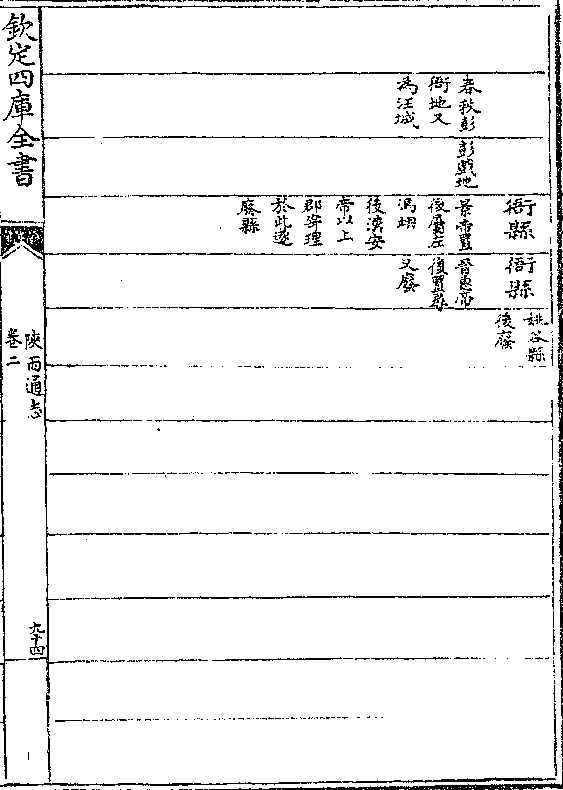 春秋彭
衙地又
為汪城
彭戲地
衙縣
景帝置
後屬左
馮翊
後漢安
帝以上
郡寄理
於此遂
廢縣
衙縣
晉惠帝
復置尋
又廢
姚谷縣
後廢
欽定四庫全書
陜西通志
卷二
九十四